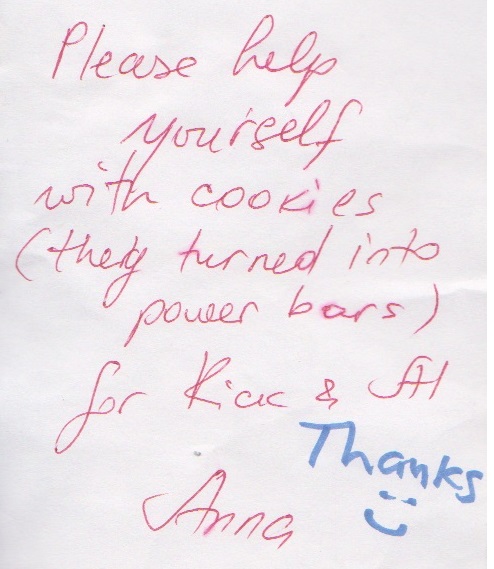 Please help
yourself
with cookies
(they turned into
power bars)
for Rick & Al
Thanks
Anna